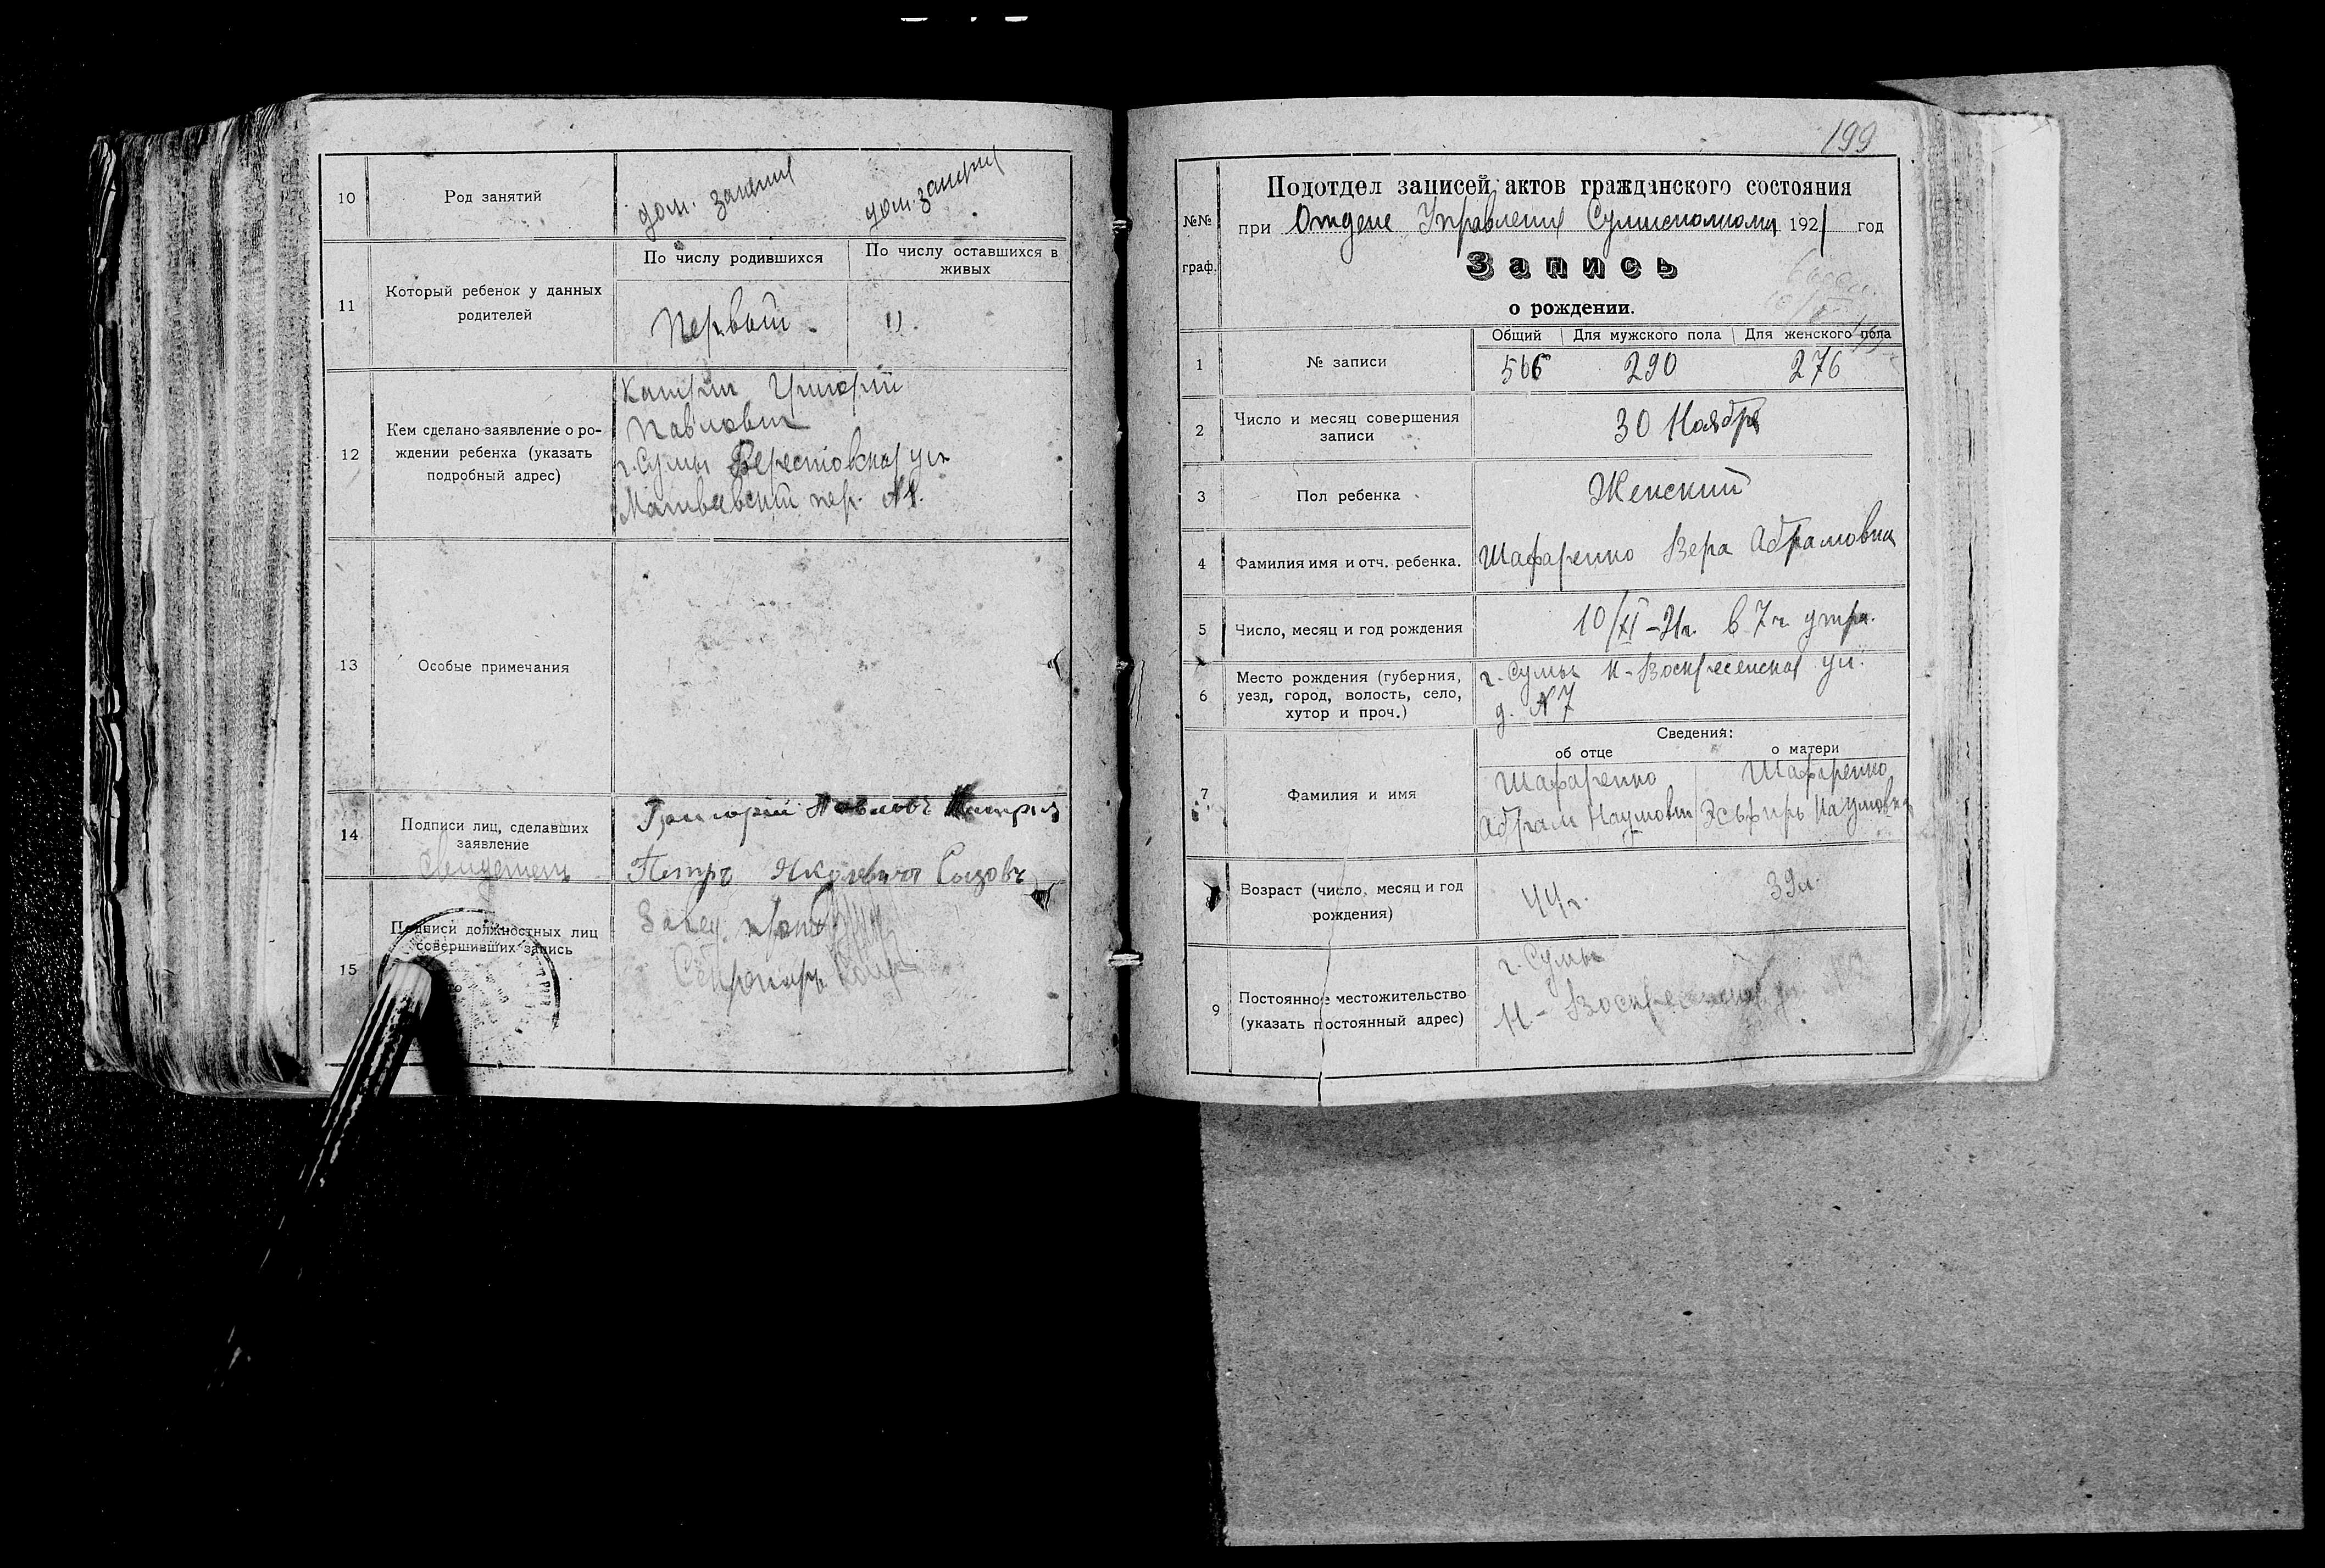 10
Род занятий
дом. занятия
дом. занятия
11
Который ребенок у данных
родителей
По числу родившихся
По числу оставшихся в
живых
Первый.
12
Кем сделано заявление о ро-
ждении ребенка (указать
подробный адрес)
Григорий
Павлович
г. Сумы Берестовская ул
Матвеевский пер. №
13
Особые примечания
14
Подписи лиц, сделавших
заявление
Свидетель
Григорий Павловъ
Петръ Яковлевичъ Сызовъ
15
Подписи должностных лиц
совершивших запись
Завед.
Секретарь
199
№№
граф.
Подотдел записей актов гражданского состояния
при Отделе Управления Сумисполкома 1921 год
Запись
о рождении.
1
№ записи
Общий
Для мужского пола
Для женского пола
566
290
276
2
Число и месяц совершения
записи
30 Ноября
3
Пол ребенка
Женский
4
Фамилия имя и отч. ребенка.
Шафаренко Вера Абрамовна
5
Число, месяц и год рождения
10/XI-21г. в 7 ч. утра.
6
Место рождения (губерния,
уезд, город, волость, село,
хутор и проч.)
г. Сумы Н-Воскресенская ул.
д. №7
Сведения:
об отце
о матери
7
Фамилия и имя
Шафаренко
Абрам Наумович
Шафаренко
Эсфирь Наумовна
8
Возраст (число, месяц и год
рождения)
44 г.
39 л.
9
Постоянное местожительство
(указать постоянный адрес)
г. Сумы
Н-Воскресенская ул.